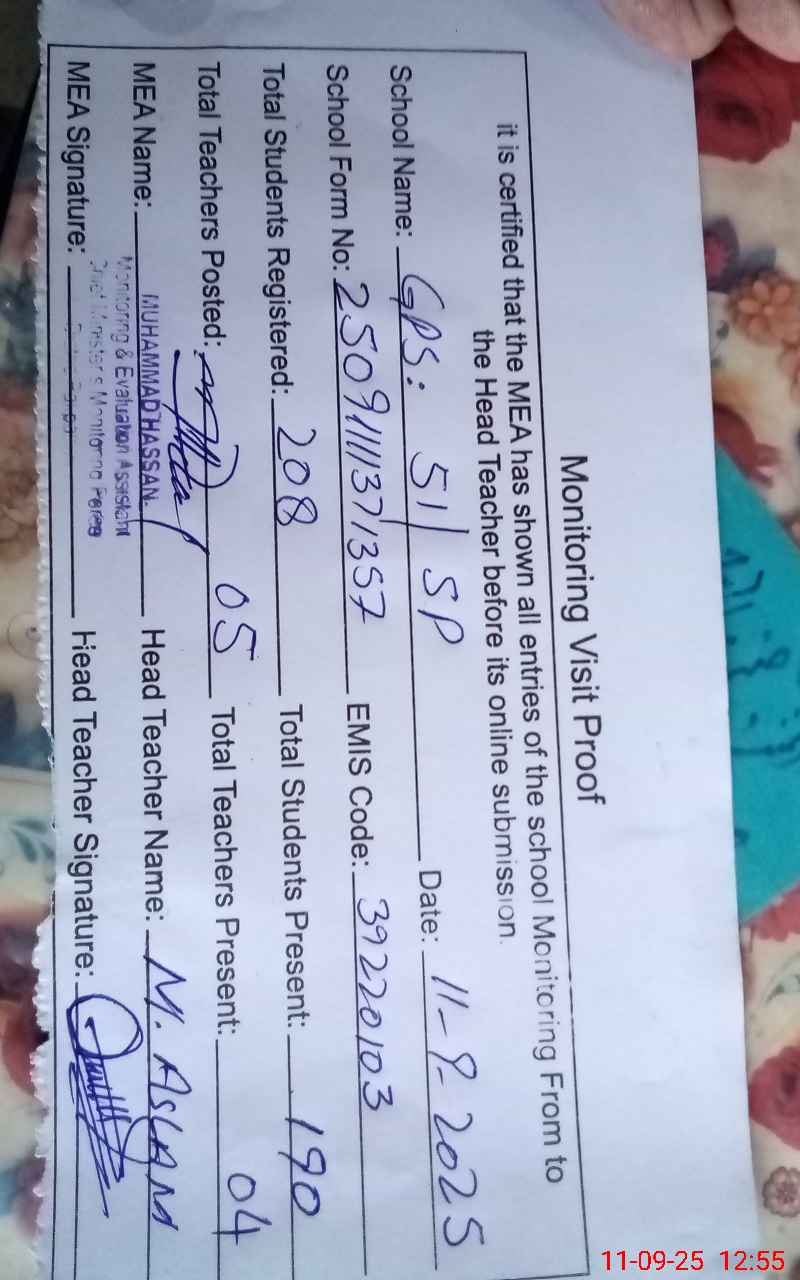 Monitoring Visit Proof
it is certified that the MEA has shown all entries of the school Monitoring From to
the Head Teacher before its online submission.
School Name: GPS: 51/SP Date: 11-9-2025
School Form No: EMIS Code: 39220103
Total Students Registered: 208 Total Students Present: 190
Total Teachers Posted: 05 Total Teachers Present: 04
MEA Name: MUHAMMAD HASSAN. Head Teacher Name: M. ASLAM
Monitoring & Evaluation Assistant
Chief Minister's Monitoring Force
MEA Signature: Head Teacher Signature:
11-09-25 12:55